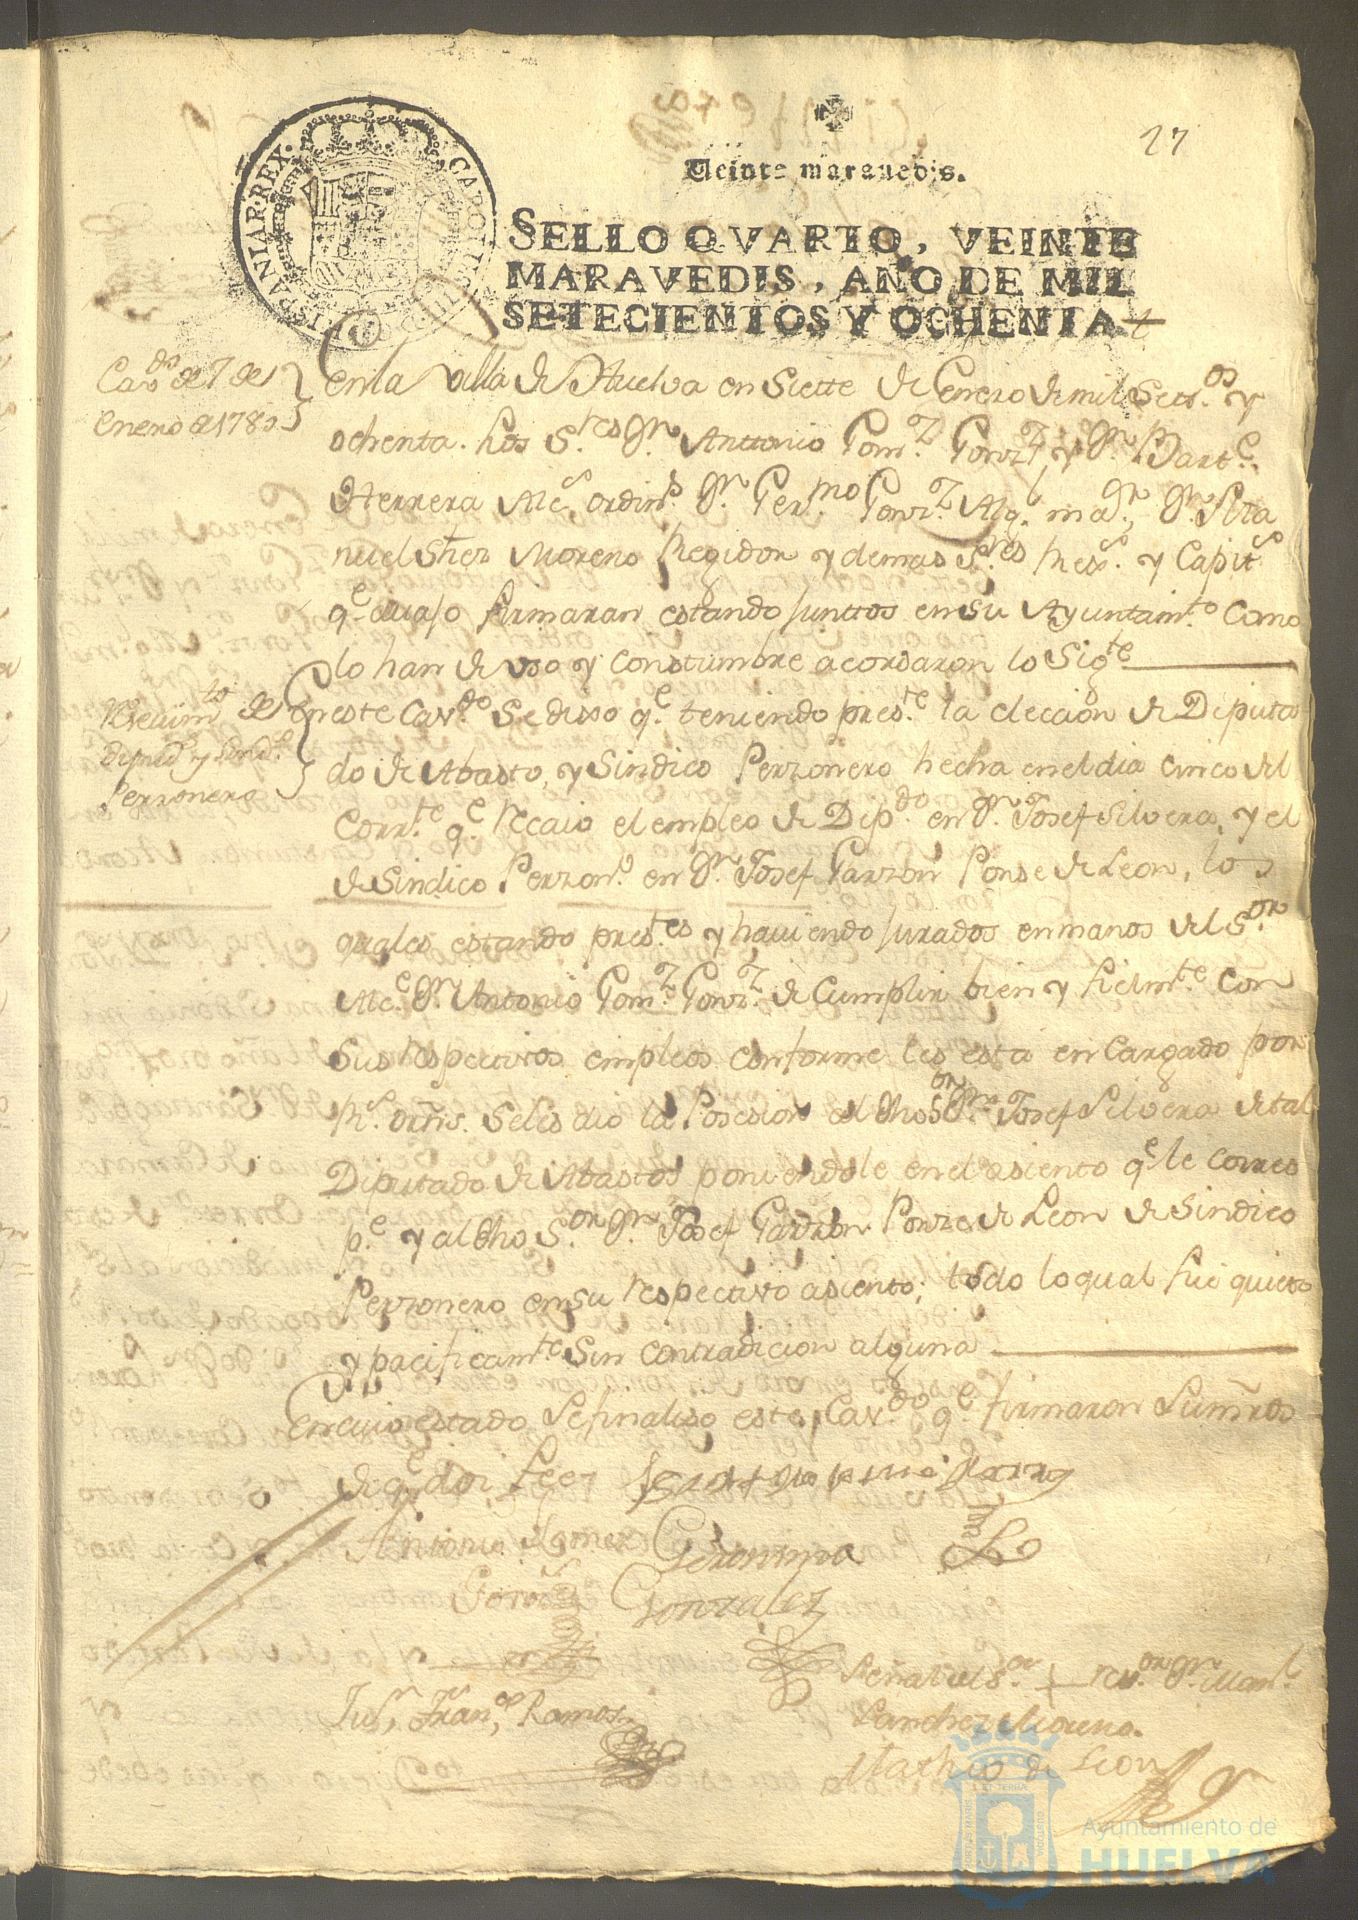 27
Veinte maravedis.
HISPANIAR·REX· CAROLUS
SELLO QVARTO, VEINTE
MARAVEDIS, AÑO DE MIL
SETECIENTOS Y OCHENTA
Cavdo. de 7 de
enero de 1780
en la villa de Huelva en Siette de Enero de mil Setts. y
ochenta. Los Sres. Dn. Anttonio Gomz. Gonzz. y Dn. Barte.
Herrera Alcs. ordins. Dn. Germo. Gonzz. Alg. mar. Dn. Ma
nuel Shez Moreno Regidor y demas Sres. Ress. y Capits.
qe. auajo firmaran estando junttos en su Ayuntamto. como
lo han de uso y Constumbre acordaron lo Sigte.
Reciuimto. de
Diputd. y Sindo.
Perzonero
En este Cavdo. Se dixo qe. teniendo preste. la eleccion de Diputa
do de Abasto, y Sindico Perzonero hecha en el dia cinco del
Corrte. qe. recaio el empleo de Dipdo. en Dn. Josef Silvera, y el
de Sindico Perzono. en Dn. Josef Garzon Ponse de Leon, los
quales estando prestes. y haviendo jurados en manos del Sor.
Alce. Dn. Antonio Gomz. Gonzz. de Cumplir bien y fielmte. con
Sus respectivos empleos conforme les esta encargado por
Rs. orns. Se les dio la Posesion al dho Sor. Dn. Josef Silvera de tal
Diputado de Abastos poniendole en el asiento qe. le corres
pe. y al dho Sor. Dn. Josef Garzon Ponze de Leon de Sindico
Perzonero en su respectivo asiento; todo lo qual fue quieto
y pacificamte. Sin contradicion alguna
En cuio estado Se finaliso este Cavdo. qe. firmaron Sus mrds
de qe. doi fee
Antonio Gomez
Geronimo
Gonzalez
Señal del Sor. + rexor. Dn. Manl.
Sanchez Moreno.
Jun. Frano. Ramos.
Matheo de Leon
Ayuntamiento de
HUELVA